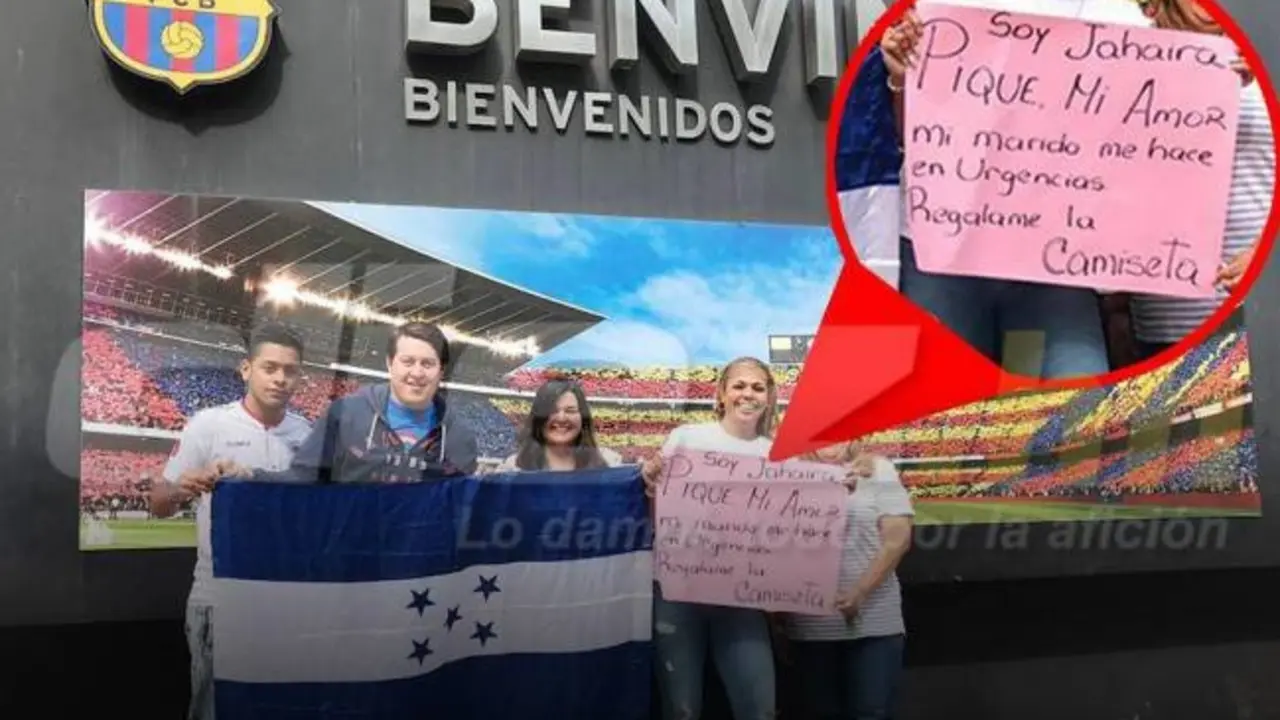 FCB
BENVIN
BIENVENIDOS
Soy Jahaira
PIQUE. Mi Amor
mi marido me hace
en Urgencias.
Regalame la
Camiseta
Soy Jahaira
PIQUE Mi Amor
mi marido me hace
en Urgencias
Regalame la
Camiseta
Lo damos todo por la afición